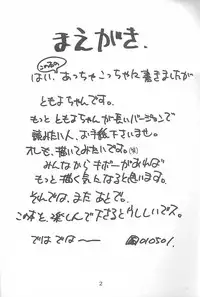 まえがき.
はい、あっちゃこっちゃに書きましたが
ともよちゃんです。
もっとともよちゃんが長いバージョンで
読みたい人、お手紙下さいませ。
オレも、描いてみたいです。(笑)
みんなからキボーがあれば
もっと描く気になると思います。
それでは、また あとで。
この本を、楽しんで下さるとうれしいでス。
では では〜
010501.
2